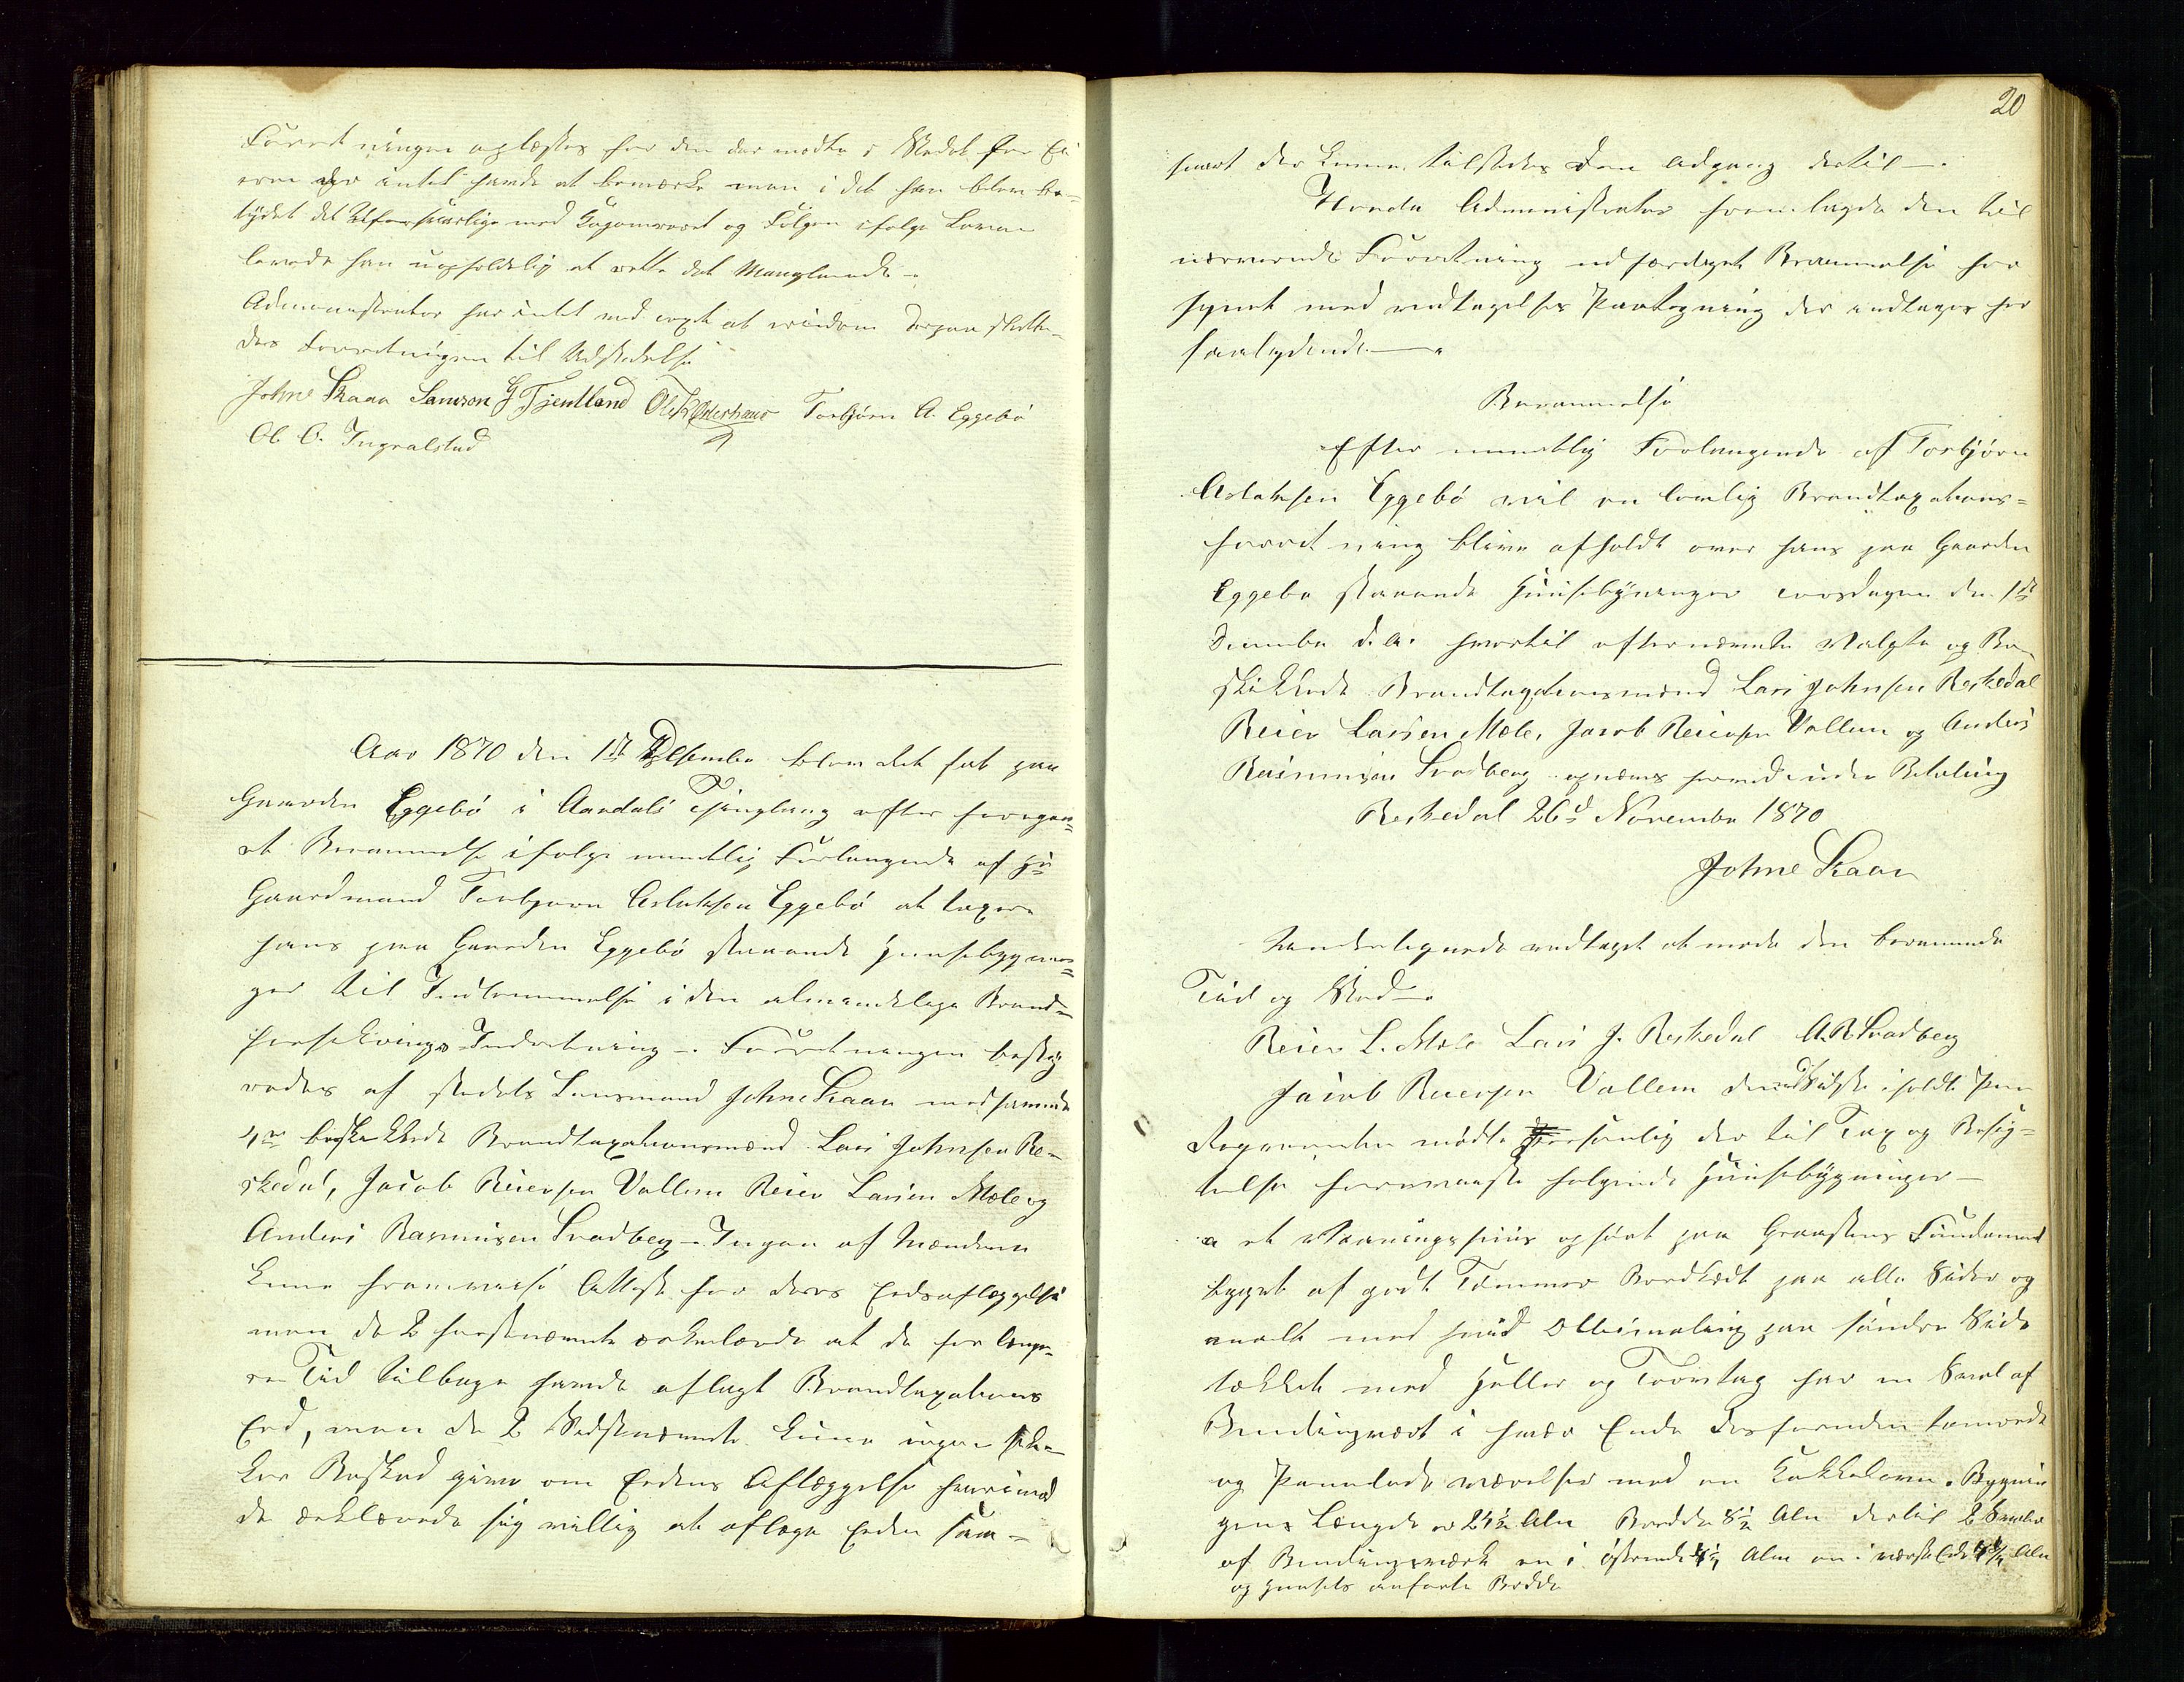 Forretningen oplæstes for den der mødte i Stedet for Ei
eren der intet havde at bemærke men i det han blev be-
tydet det Uforsvarlige med og Følgen ifølge Loven
lovede han uopholdelig at rette det Manglende.
Administrator har intet ved taxt at erindre Derpaa slutte-
des Forretningen til Udstedelse
Johne Skaar Samson G Tjentland Torbjørn A. Eggebø
Ol O. Ingvalstad
Aar 1870 den 1ste Desember blev Ret sat paa
Gaarden Eggebø i Aardals Thinglaug efter foregaa=
et Berammelse ifølge mundtlig Forlangende af
Gaardmand Torbjørn Aslaksen Eggebø at taxere
hans paa Gaarden Eggebø staaende Huusebygnin=
ger til Indlemmelse i den almindelige Brand=
forsikrings-Indretning. Forretningen besty
redes af stedets Lensmand Johne Skaar med følgende
4re beskikkede Brandtaxationsmænd Lars Johnsen Re-
skedal, Jacob Reiersen Vallem Reier Larsen Mæle og
Anders Rasmusen Svadberg. Ingen af Mændene
kunne fremvise Attest for deres Eedsaflæggelse
men de 2 førstnævnte erklærede at de for længe-
re Tid tilbage havde aflagt Brandtaxations
Eed, men de 2 Sidstnævnte kunne ingen sik-
ker Besked give om Eedens Aflæggelse hvorimod
de erklærede sig villig at aflæge Eeden saa-
20
snart der kunne tilstedes dem Adgang dertil.
Administrator fremlagde den til
nærværende Forretning udfærdiget Berammelse for
synet med vedtagelses Paategning der indtages her
saalydende.
Berammelse
Efter mundtlig Forlangende af Torbjørn
Aslaksen Eggebø vil en lovlig Brandtaxations=
forretning blive afholdt over hans paa Gaarden
Eggebø staaende Huusebygninger torsdagen den 1ste
December d.A. hvortil efternævnte Valgte og Be
skikkede Brandtaxationsmænd Lars Johnsen Reskedal
Reier Larsen Mæle, Jacob Reiersen Vallem og Anders
Rasmusen Svadberg opnævnes herved under Betaling
Reskedal 26de November 1870
Johne Skaar
Undertegnede vedtaget at møde den berammede
Tid og Sted.
Reier L. Mæle Lars J. Reskedal A.R Svadberg
Jacob Reiersen Vallem
Reqvirenten mødte personlig der til Tax og Besig=
telse fremviste følgende Huusebygninger –
a et Vaaningshuus opført paa Graastens Fundament
bygget af godt Tømmer Bordklædt paa alle Sider og
malt med hvid Olliemaling paa søndre Side
tækket med Heller og Torvtag har en Sval af
Bindingsverk i hver Ende desforuden tømrede
og Panelede værelser med en Kakkelovn. Bygnin
gens Længde er 24½ Alen Bredde 8½ Alen dertil 2 Svaler
af Bindingsværk en i østrende 4½ Alen en i vestre Ende Alen
og Huusets anførte Bredde